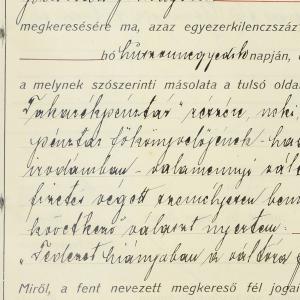 megkeresésére ma, azaz egyezerkilenczszáz
hó huszonnegyedik napján,
a melynek szószerinti másolata a tulsó olda
Takarékpénztár" részére, neki,
pénztár főkönyvelőjének - ha
irodámban - valamennyi vál
fizetés végett személyesen bem
következő választ nyertem:
„Fedezet hiányában a váltóra
Miről, a fent nevezett megkereső fél jogai